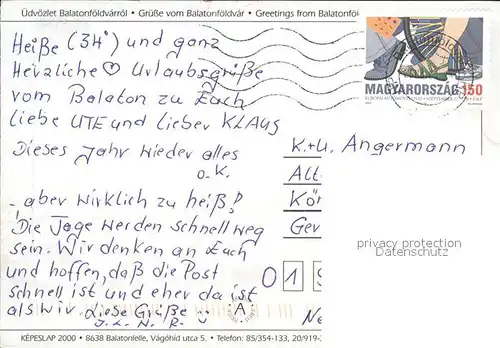 Üdvözlet Balatonföldvárról • Grüße vom Balatonföldvár • Greetings from Balatonföl
MAGYARORSZÁG 150
Heiße (34°) und ganz
Herzliche ♡ Urlaubsgrüße
vom Balaton zu Euch
liebe UTE und lieber KLAUS
Dieses Jahr wieder alles
o.K.
- aber wirklich zu heiß!
Die Tage werden schnell weg
sein. Wir denken an Euch
und hoffen, daß die Post
schnell ist und eher da ist
als wir. diese Grüße
K.+U. Angermann
Alt
Kör
Gev
privacy protection
Datenschutz
0 1
Ne
A
KÉPESLAP 2000 • 8638 Balatonlelle, Vágóhíd utca 5. • Telefon: 85/354-133, 20/919-2